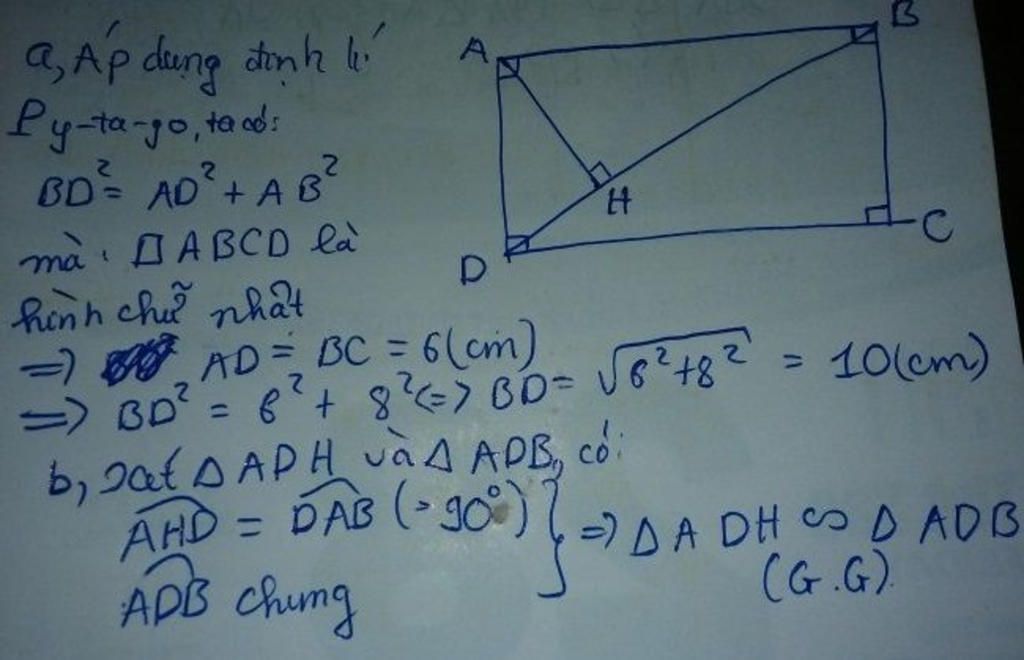 a, Áp dụng định lí
Py-ta-go, ta có:
BD² = AD² + AB²
mà: □ABCD là
hình chữ nhật
=> AD = BC = 6(cm)
=> BD² = 6² + 8² <=> BD = √6²+8² = 10(cm)
b, xét Δ ADH và Δ ADB, có:
AHD = DAB (=90°)
ADB chung
} => Δ ADH ∽ Δ ADB
(G.G).
A
B
H
C
D